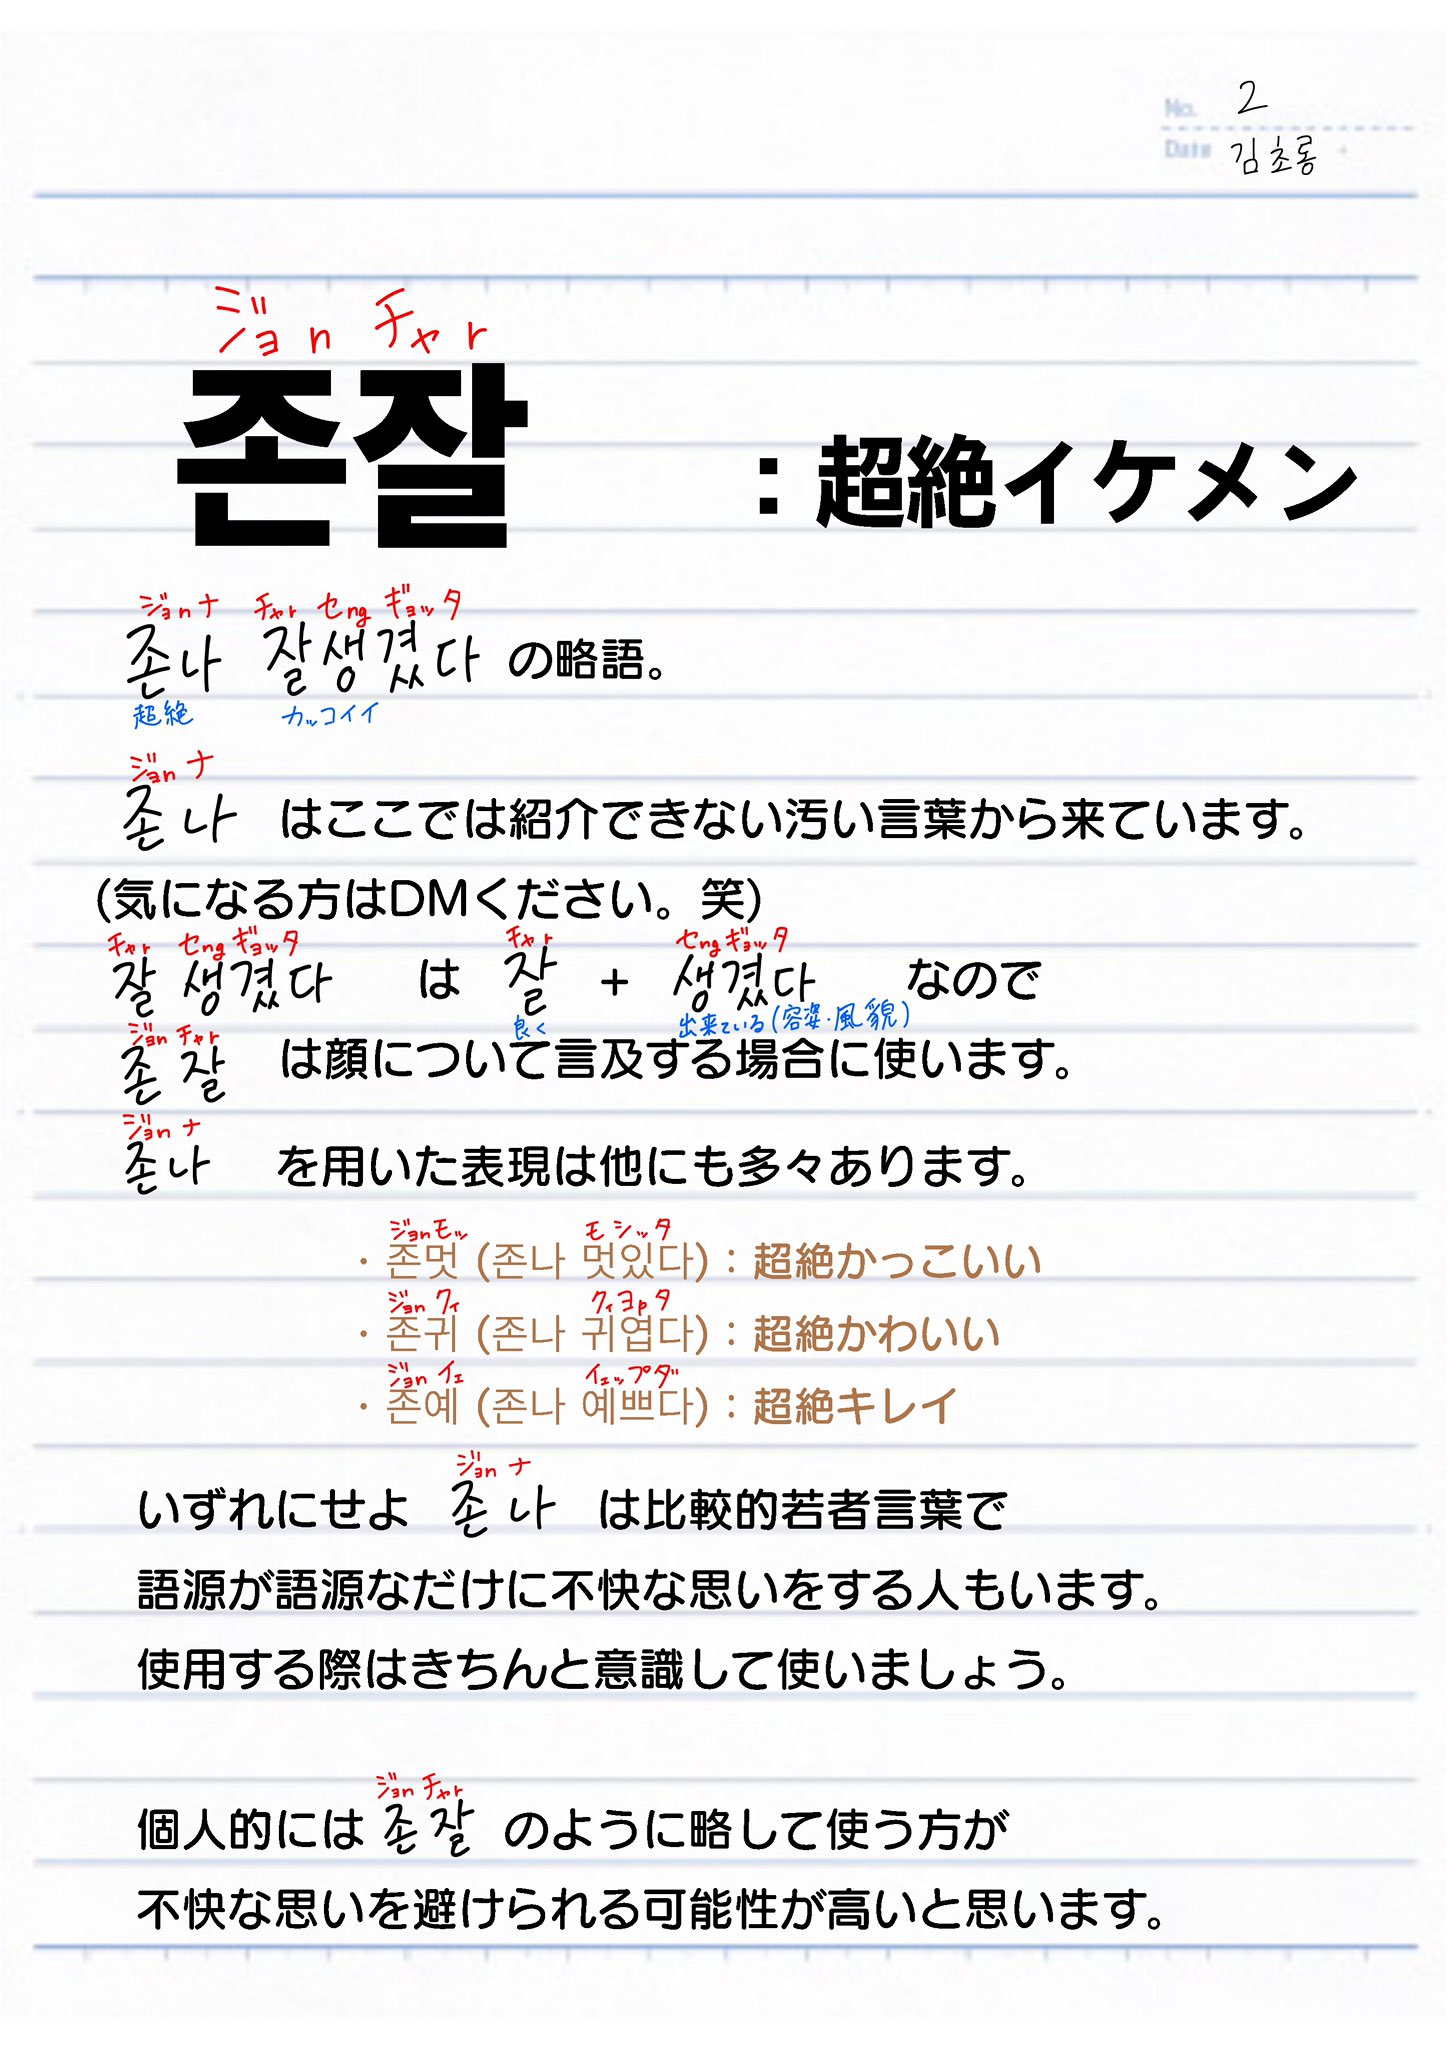 No. 2
Date 김초롱
ジョn チャr
존잘 :超絶イケメン
ジョnナ チャr セng ギョッタ
존나 잘생겼다 の略語。
超絶 カッコイイ
ジョn ナ
존나 はここでは紹介できない汚い言葉から来ています。
(気になる方はDMください。笑)
チャr セng ギョッタ チャr セng ギョッタ
잘 생겼다 は 잘 + 생겼다 なので
良く 出来ている(容姿・風貌)
ジョn チャr
존잘 は顔について言及する場合に使います。
ジョn ナ
존나 を用いた表現は他にも多々あります。
ジョnモッ モシッタ
・존멋 (존나 멋있다):超絶かっこいい
ジョn クィ クィヨpタ
・존귀 (존나 귀엽다):超絶かわいい
ジョn イェ イェップダ
・존예 (존나 예쁘다):超絶キレイ
ジョn ナ
いずれにせよ 존나 は比較的若者言葉で
語源が語源なだけに不快な思いをする人もいます。
使用する際はきちんと意識して使いましょう。
ジョn チャr
個人的には 존잘 のように略して使う方が
不快な思いを避けられる可能性が高いと思います。